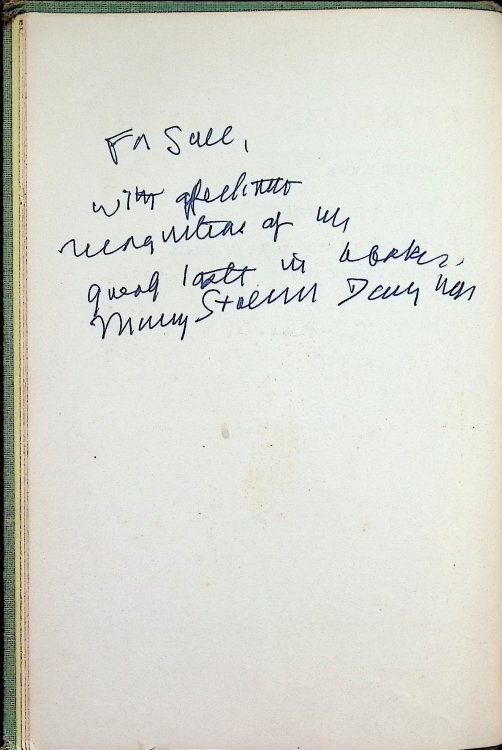 For Sale,
with affectionate
recognition of his
good taste in books,
Marjory Stoneman Douglas